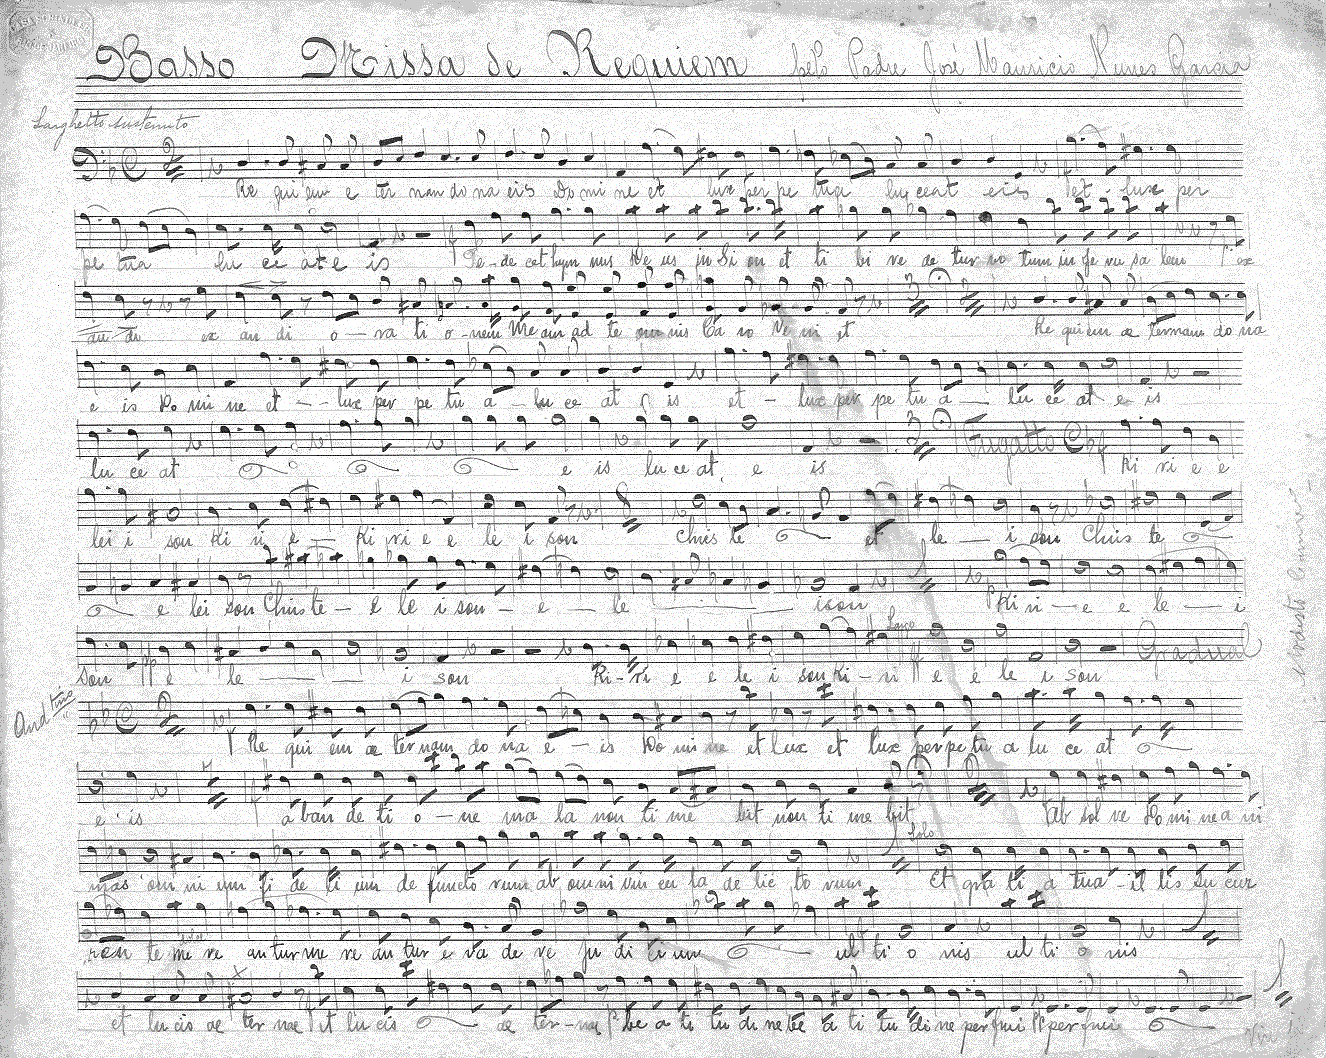 Basso Missa de Requiem pelo Padre José Mauricio Nunes Garcia
Larghetto sustenuto
Re qui em e ter nam do na eis Do mi ne et lux per pe tua lu ceat eis et lux per
pe tua lu ce at e is Te de cet hym nus De us in Si on et ti bi re de tur vo tum in Je ru sa lem ex
au di ex au di o ra ti o nem Me am ad te om nis Ca ro Ve ni et Re qui em ae ternam do na
e is Do mi ne et lux per pe tu a lu ce at e is et lux per pe tu a lu ce at e is
lu ce at e is lu ce at e is Fugatto Ki ri e e
lei i son Ki ri e Ki ri e e le i son Chris te et le i son Chris te
e lei son Christe e le i son e le ison Ki ri e e le i
son e le i son Ki ri e e le i son Ki ri e e le i son Largo Gradual
And tino
Re qui em ae ter nam do na e is Do mi ne et lux et lux per pe tu a lu ce at
e is a bau de ti o ne ma la non ti me bit non ti me bit Ab sol ve Do mi ne a ni
mas om ni um fi de li um de functo rum ab om ni vin cu la de lic to rum Solo Et gra ti a tua il lis su cur
ren te me re an tur me re an tur e va de re ju di ci um ul ti o nis ul ti o nis
et lu cis ae ter nae et lu cis ae ter nae be a ti tu di ne be a ti tu di ne per frui per frui